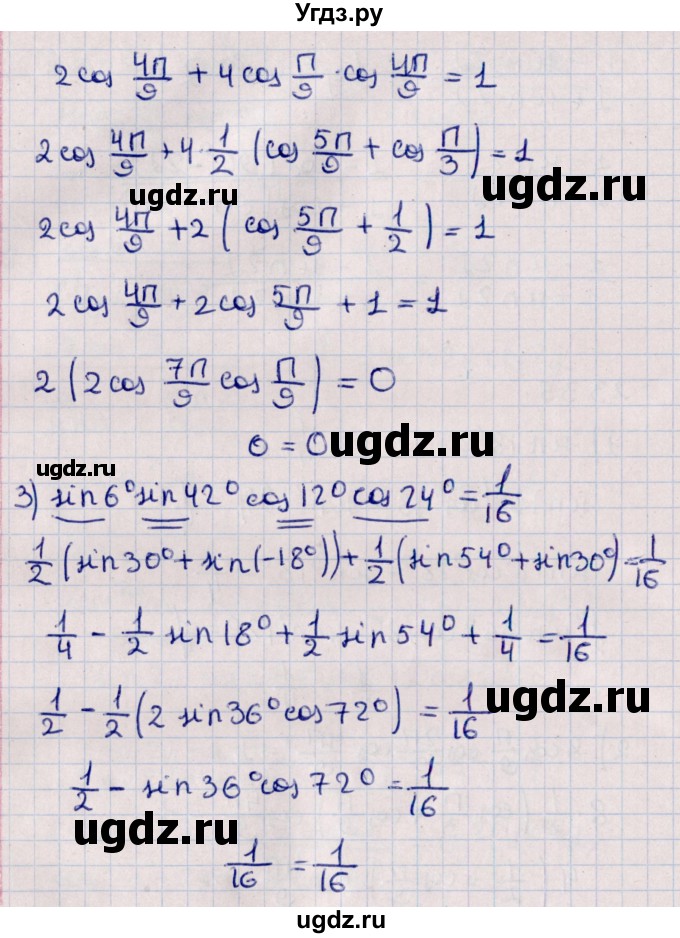 Угдз.ру
2cos 4П/9 + 4cos П/9 · cos 4П/9 = 1
2cos 4П/9 + 4·1/2 (cos 5П/9 + cos П/3) = 1
ugdz.ru
ugdz.ru
2cos 4П/9 + 2 ( cos 5П/9 + 1/2 ) = 1
2cos 4П/9 + 2cos 5П/9 + 1 = 1
2 (2cos 7П/9 cos П/9 ) = 0
0 = 0
ugdz.ru
ugdz.ru
3) sin6° sin42° cos12° cos24° = 1/16
1/2 (sin30° + sin(-18°)) + 1/2 (sin54° + sin30°) = 1/16
1/4 - 1/2 sin18° + 1/2 sin54° + 1/4 = 1/16
1/2 - 1/2 (2 sin36° cos72°) = 1/16
ugdz.ru
1/2 - sin36° cos72° = 1/16
ugdz.ru
1/16 = 1/16
ugdz.ru